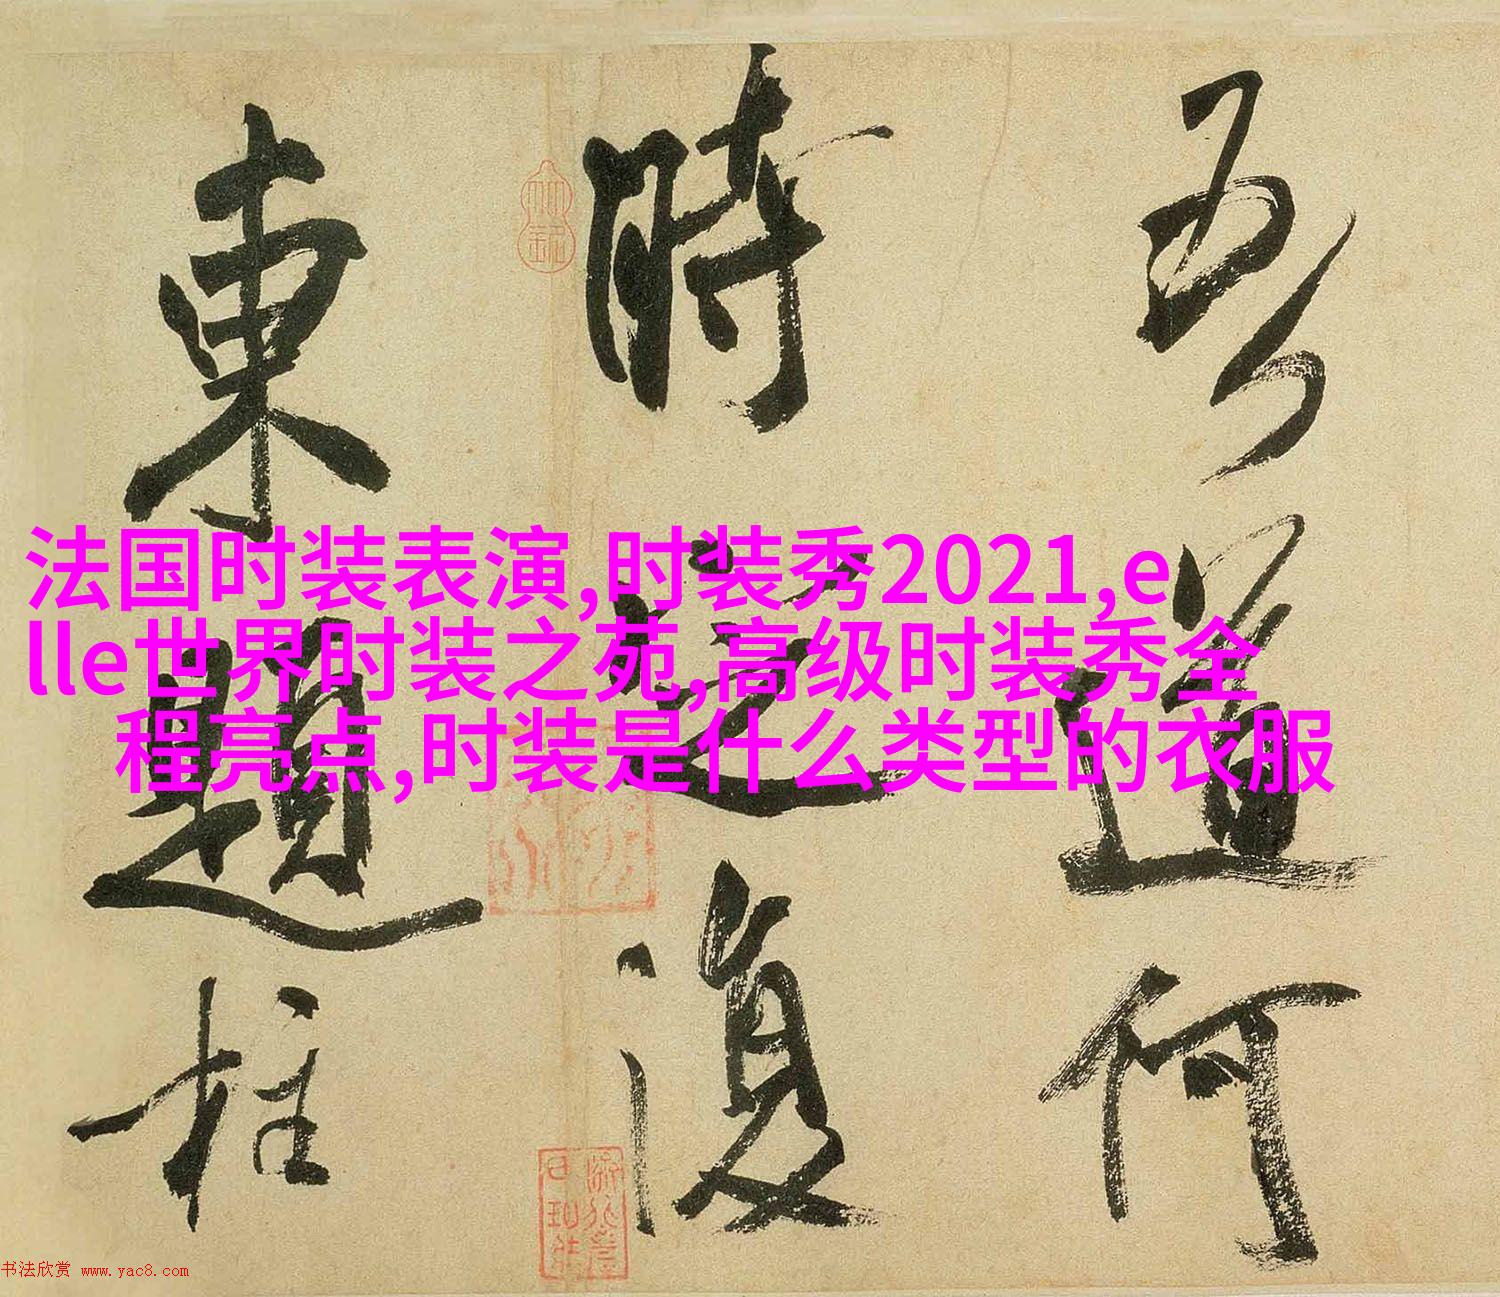 吾道何
時定復
東題柱
法国时装表演,时装秀2021,e
lle世界时装之苑,高级时装秀全
程亮点,时装是什么类型的衣服
书法欣赏 www.yac8.com